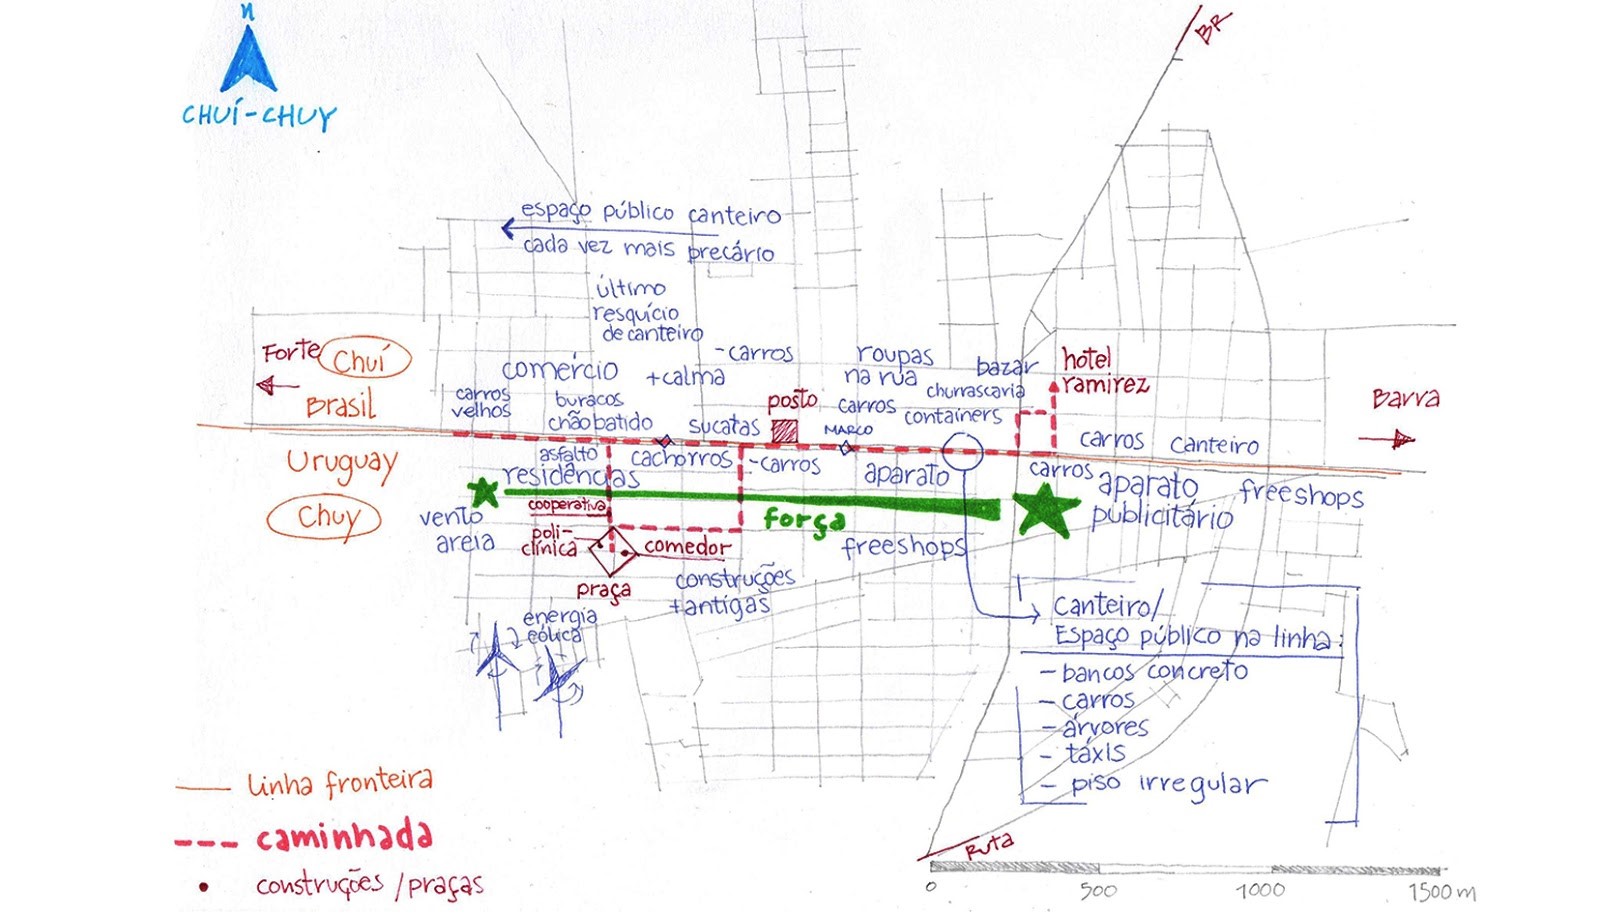 n
CHUÍ-CHUY
BR
espaço público canteiro
cada vez mais precário
último
resquício
de canteiro
Forte
Chuí
Brasil
comércio
-carros
+calma
carros
velhos
buracos
chão batido
sucatas
posto
roupas
na rua
carros
MARCO
bazar
churrascaria
containers
hotel
ramirez
Barra
carros canteiro
Uruguay
Chuy
asfalto
residências
cachorros
-carros
aparato
carros
aparato
publicitário
freeshops
vento
areia
cooperativa
poli-
clínica
comedor
praça
força
freeshops
construções
+antigas
energia
eólica
canteiro/
Espaço público na linha:
- bancos concreto
- carros
- árvores
- táxis
- piso irregular
linha fronteira
caminhada
construções/praças
Ruta
0 500 1000 1500 m